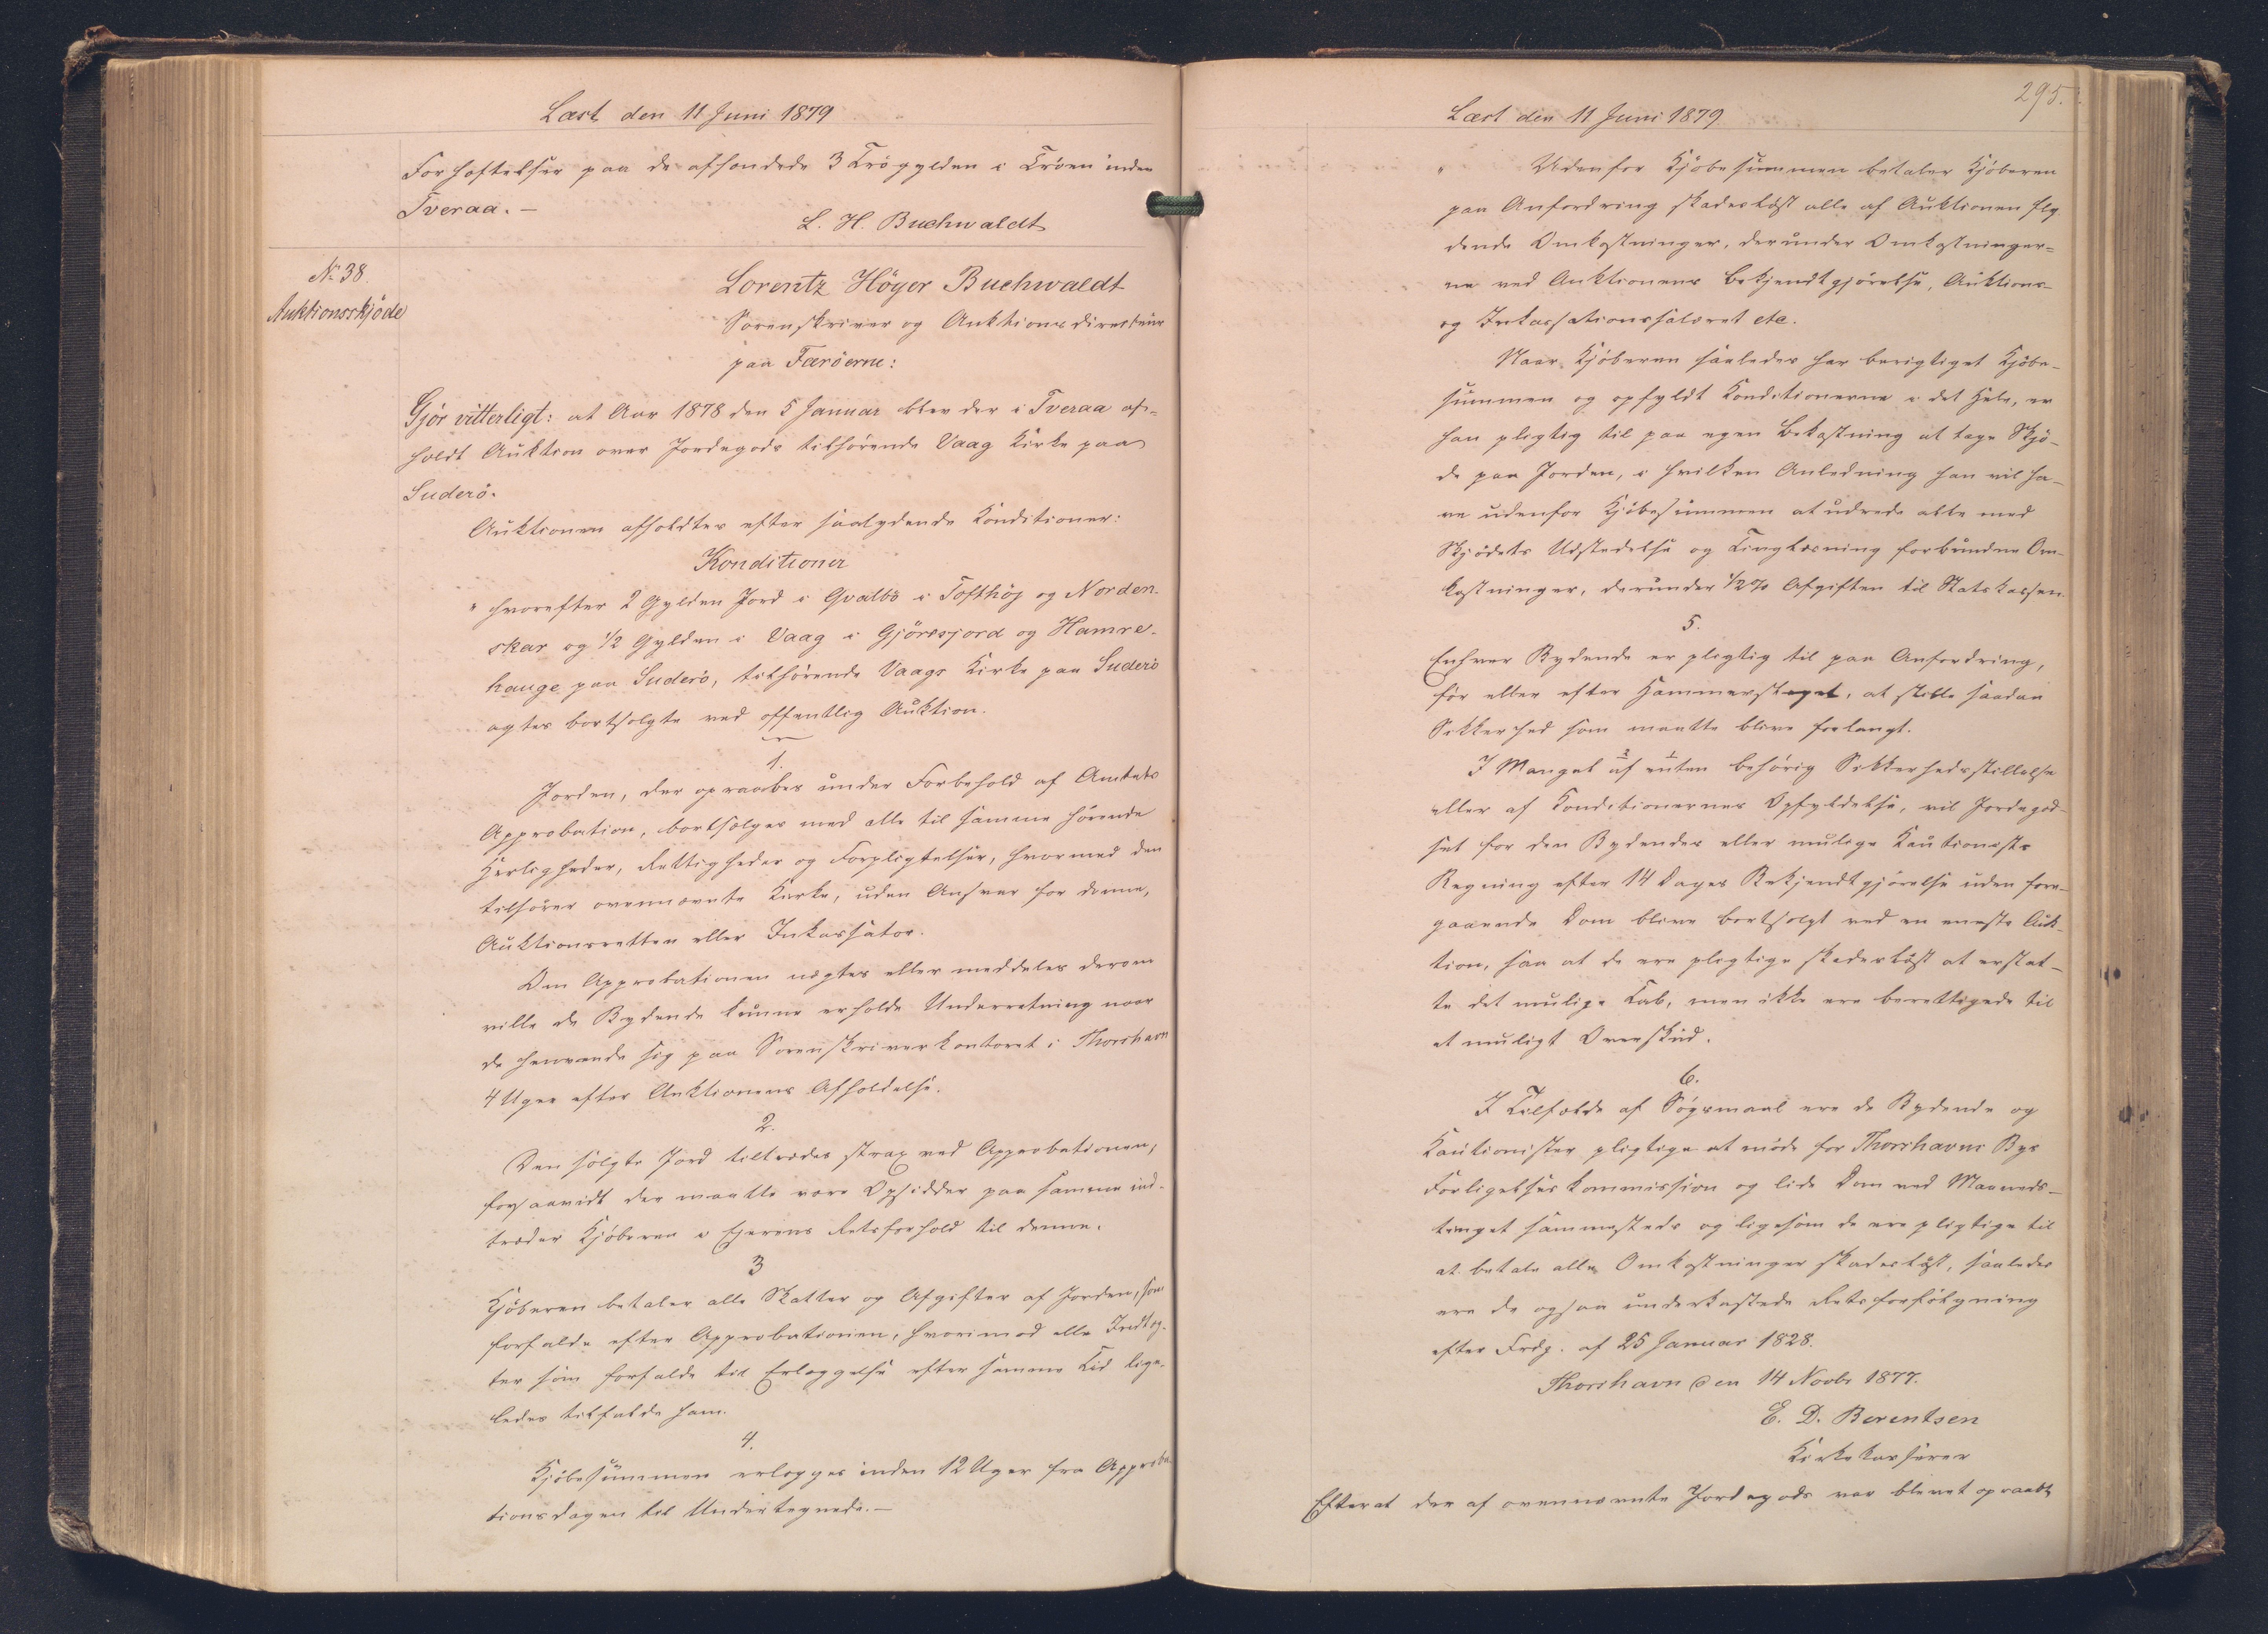 Læst den 11 Juni 1879
Forhæftelser paa de afhændede 3 Trögylden i Tröen inden
Tveraa. —
L. H. Buchwaldt
No 38.
Auktionsskjöde
Lorentz Höyer Buchwaldt
Sorenskriver og Auktionsdirecteur
paa Færöerne:
Gjör vitterligt: at Aar 1878 den 5 Januar blev der i Tveraa af-
holdt Auktion over Jordegods tilhörende Vaag Kirke paa
Suderö.
Auktionen afholdtes efter saalydende Konditioner:
Konditioner
" hvorefter 2 Gylden Jord i Qvalbö i Tofthöj og Norden-
skar og 1/2 Gylden i Vaag i Gjöresjord og Hamre-
hauge paa Suderö, tilhörende Vaags Kirke paa Suderö
agtes bortsolgte ved offentlig Auktion.
1.
Jorden, der opraabes under Forbehold af Amtets
Approbation, bortsælges med alle til samme hörende
Herligheder, Rettigheder og Forpligtelser, hvormed den
tilhörer ovennævnte Kirke, uden Ansvar for denne,
Auktionsretten eller Inkassator.
Om Approbationen nægtes eller meddeles derom
ville de Bydende kunne erholde Underretning naar
de henvende sig paa Sorenskriverkontoret i Thorshavn
4 Uger efter Auktionens Afholdelse.
2.
Den solgte Jord tiltrædes strax ved Approbationen,
forsaavidt der maatte være Opsidder paa samme ind-
træder Kjöberen i Ejerens Retsforhold til denne.
3
Kjöberen betaler alle Skatter og Afgifter af Jorden, som
forfalde efter Approbationen, hvorimod alle Indtæg-
ter som forfalde til Erlæggelse efter samme Tid lige-
ledes tilfalde ham.
4.
Kjöbesummen erlægges inden 12 Uger fra Approba-
tionsdagen til Undertegnede. —
295.
Læst den 11 Juni 1879
" Udenfor Kjöbesummen betaler Kjöberen
paa Anfordring skadeslöst alle af Auktionen fly-
dende Omkostninger, derunder Omkostninger-
ne ved Auktionens Bekjendtgjörelse, Auktions-
og Inkassationssalæret etc.
Naar Kjöberen saaledes har berigtiget Kjöbe-
summen og opfyldt Konditionerne i det Hele, er
han pligtig til paa egen Bekostning at tage Skjö-
de paa Jorden, i hvilken Anledning han vil ha-
ve udenfor Kjöbesummen at udrede alle med
Skjödets Udstedelse og Tinglæsning forbundne Om-
kostninger, derunder 1/2 % Afgiften til Statskassen.
5.
Enhver Bydende er pligtig til paa Anfordring,
för eller efter Hammerslaget, at stille saadan
Sikkerhed som maatte blive forlangt.
I Mangel af enten behörig Sikkerhedsstillelse
eller af Konditionernes Opfyldelse, vil Jordegod-
set for den Bydendes eller mulige Kautionists
Regning efter 14 Dages Bekjendtgjörelse uden fore-
gaaende Dom blive bortsolgt ved en eneste Auk-
tion, saa at de ere pligtige skadeslöst at erstat-
te det mulige Tab, men ikke ere berettigede til
et muligt Overskud.
6.
I Tilfælde af Sögsmaal ere de Bydende og
Kautionister pligtige at möde for Thorshavns Byes
Forligelses Kommission og lide Dom ved Maaneds-
tinget sammesteds og ligesom de ere pligtige til
at betale alle Omkostninger skadeslöst, saaledes
ere de ogsaa underkastede Retsforfölgning
efter Frdg. af 25 Januar 1828.
Thorshavn den 14 Novbr 1877.
E. D. Berentsen
Kirkekasserer
Efterat der af ovennævnte Jordegods var blevet opraabt